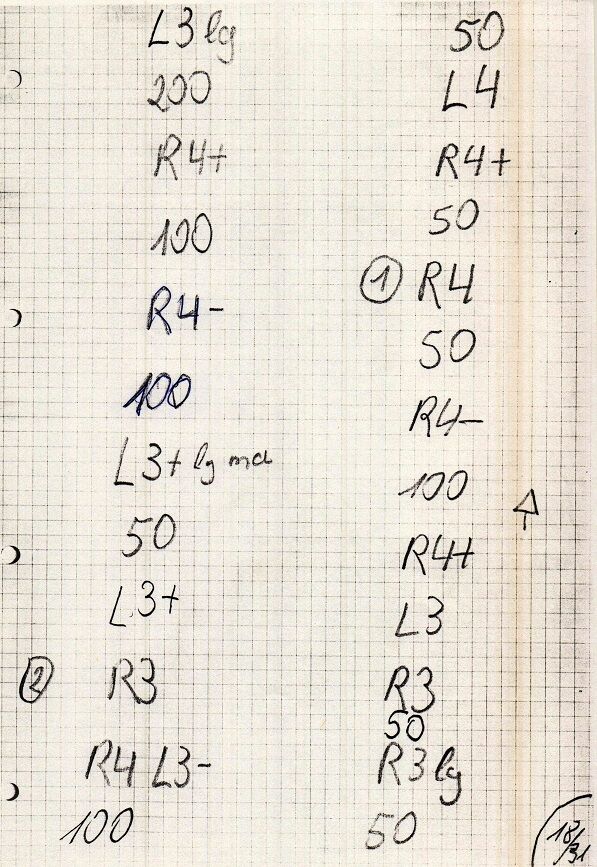 L3 lg
200
R4+
100
R4-
100
L3+ lg
50
L3+
2 R3
R4 L3-
100
50
L4
R4+
50
1 R4
50
R4-
100
R4+
L3
R3
50
R3 lg
50
18/31